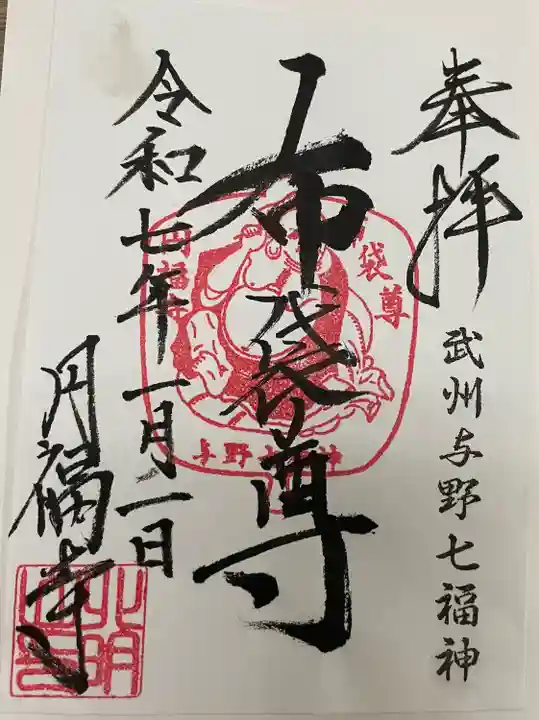 奉拝
武州与野七福神
布袋尊
令和七年一月二日
円福寺
布袋尊
円福寺